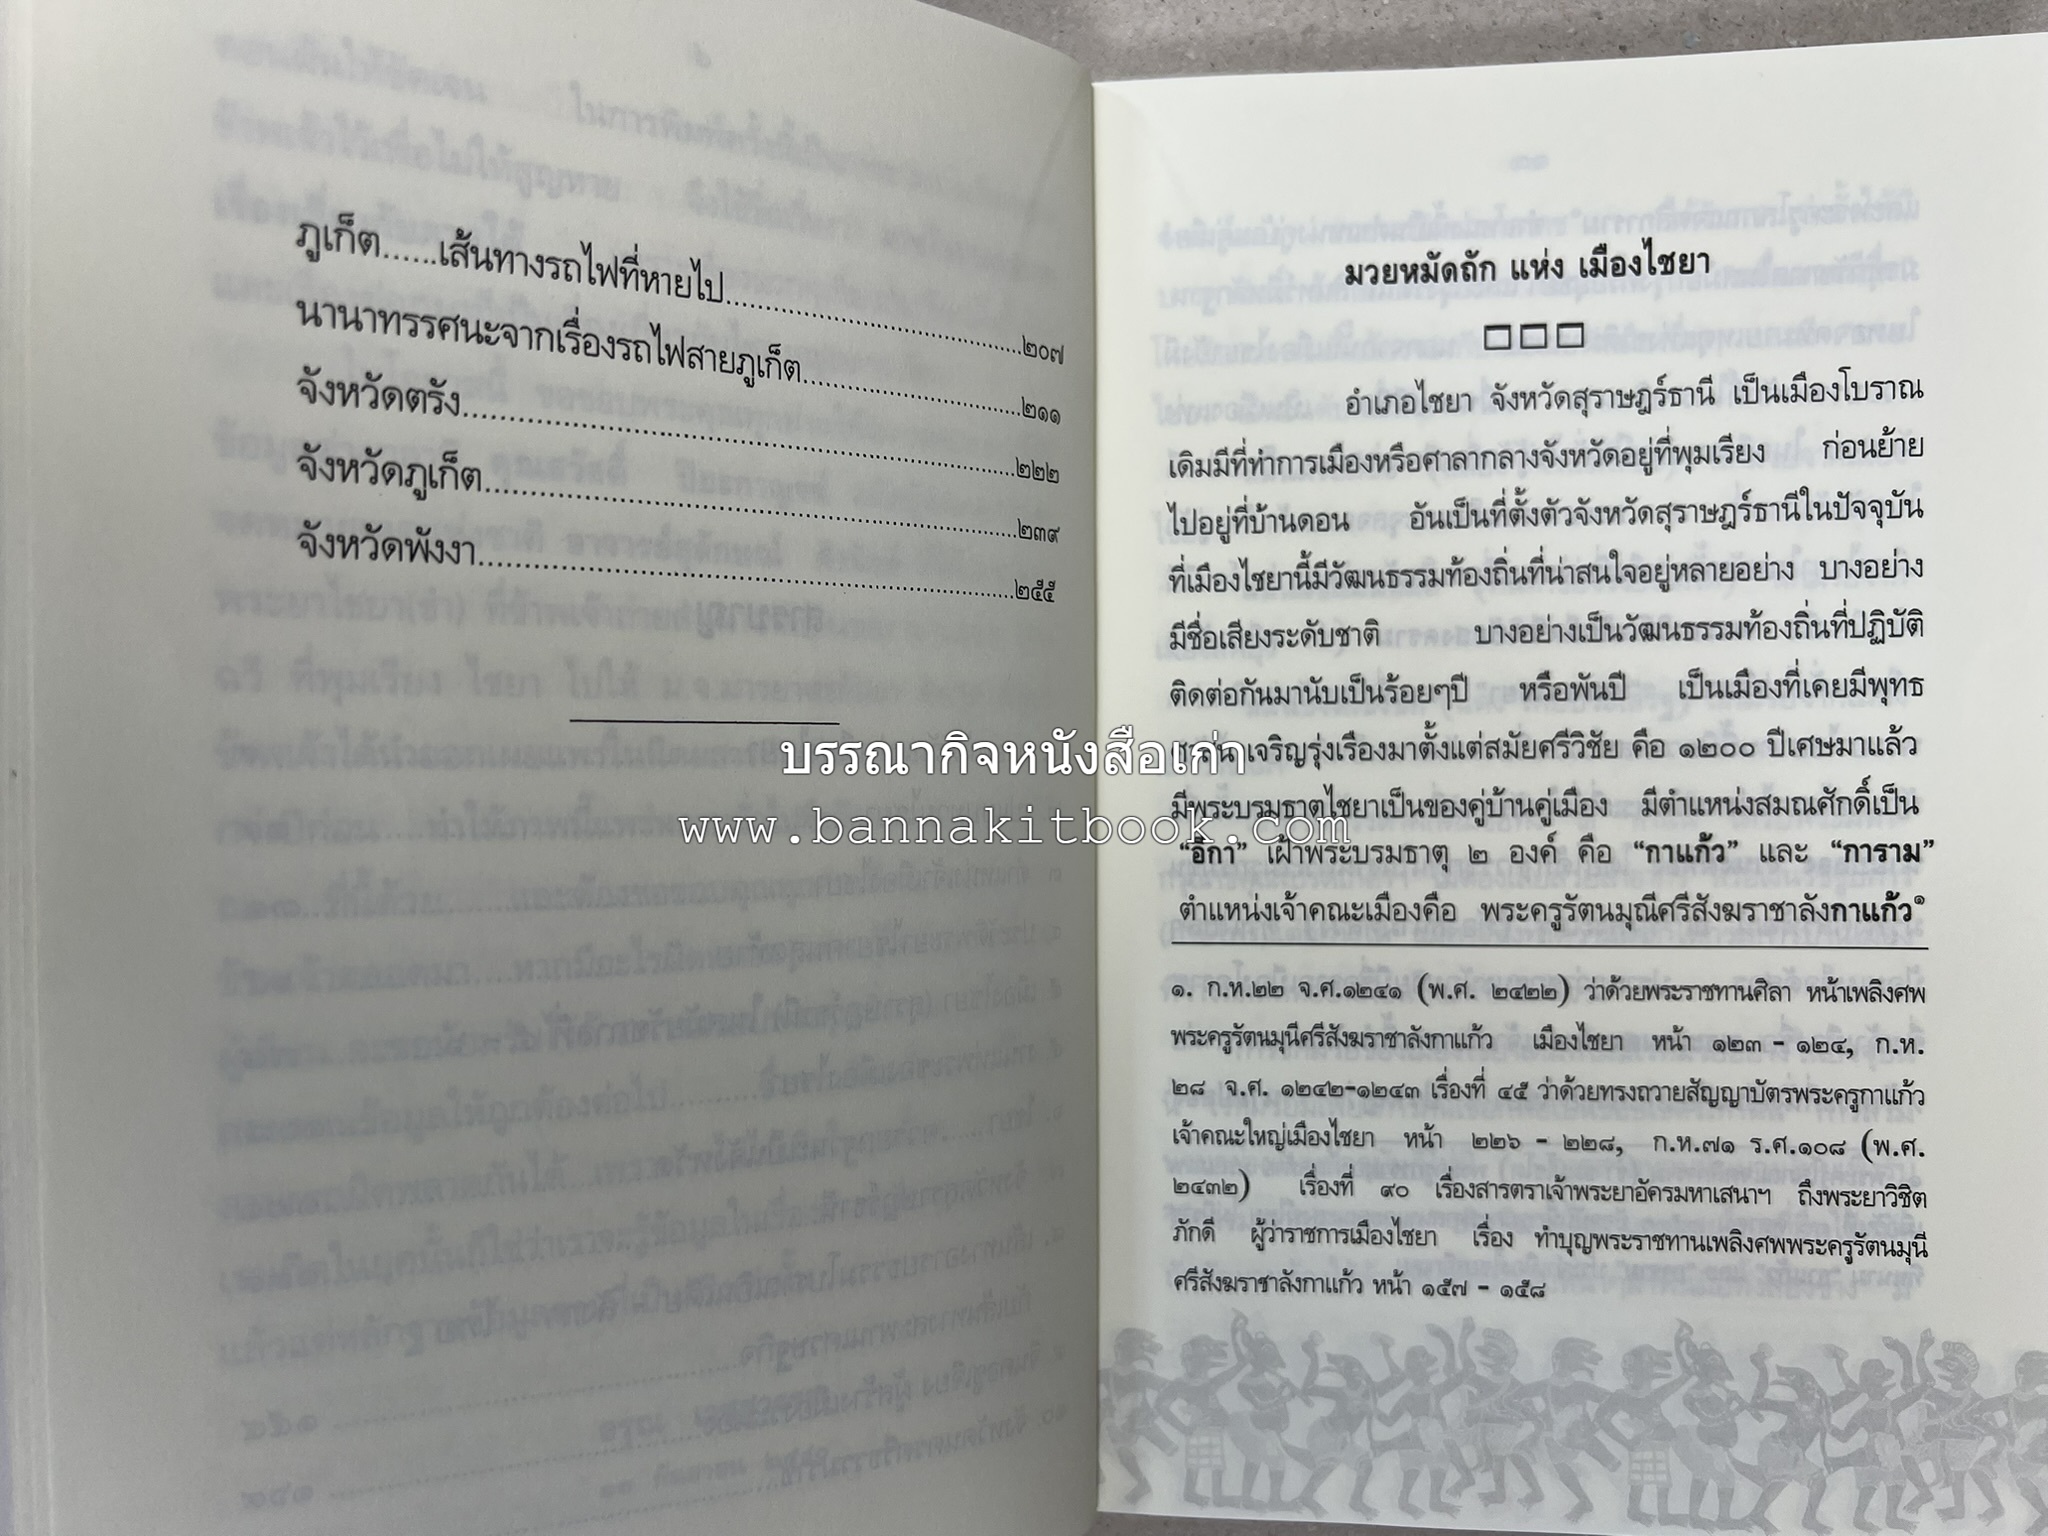 ภูเก็ต......เส้นทางรถไฟที่หายไป..................................................๒๐๗
นานาทรรศนะจากเรื่องรถไฟสายภูเก็ต...................................๒๑๑
จังหวัดตรัง.....................................................................................๒๒๒
จังหวัดภูเก็ต...................................................................................๒๓๙
จังหวัดพังงา...................................................................................๒๕๕
บรรณากิจหนังสือเก่า
www.bannakitbook.com
มวยหมัดถัก แห่ง เมืองไชยา
อำเภอไชยา จังหวัดสุราษฎร์ธานี เป็นเมืองโบราณ
เดิมมีที่ทำการเมืองหรือศาลากลางจังหวัดอยู่ที่พุมเรียง ก่อนย้าย
ไปอยู่ที่บ้านดอน อันเป็นที่ตั้งตัวจังหวัดสุราษฎร์ธานีในปัจจุบัน
ที่เมืองไชยานี้มีวัฒนธรรมท้องถิ่นที่น่าสนใจอยู่หลายอย่าง บางอย่าง
มีชื่อเสียงระดับชาติ บางอย่างเป็นวัฒนธรรมท้องถิ่นที่ปฏิบัติ
ติดต่อกันมานับเป็นร้อยๆปี หรือพันปี เป็นเมืองที่เคยมีพุทธ
เจริญรุ่งเรืองมาตั้งแต่สมัยศรีวิชัย คือ ๑๒๐๐ ปีเศษมาแล้ว
มีพระบรมธาตุไชยาเป็นของคู่บ้านคู่เมือง มีตำแหน่งสมณศักดิ์เป็น
“อีกา” เฝ้าพระบรมธาตุ ๒ องค์ คือ “กาแก้ว” และ “การาม”
ตำแหน่งเจ้าคณะเมืองคือ พระครูรัตนมุณีศรีสังฆราชาลังกาแก้ว๑
๑. ก.ห.๒๒ จ.ศ.๑๒๔๑ (พ.ศ. ๒๔๒๒) ว่าด้วยพระราชทานศิลา หน้าเพลิงศพ
พระครูรัตนมุนีศรีสังฆราชาลังกาแก้ว เมืองไชยา หน้า ๑๒๓ - ๑๒๔, ก.ห.
๒๘ จ.ศ. ๑๒๔๒-๑๒๔๓ เรื่องที่ ๔๕ ว่าด้วยทรงถวายสัญญาบัตรพระครูกาแก้ว
เจ้าคณะใหญ่เมืองไชยา หน้า ๒๒๖ - ๒๒๘, ก.ห.๗๑ ร.ศ.๑๐๘ (พ.ศ.
๒๔๓๒) เรื่องที่ ๙๐ เรื่องสารตราเจ้าพระยาอัครมหาเสนาฯ ถึงพระยาวิชิต
ภักดี ผู้ว่าราชการเมืองไชยา เรื่อง ทำบุญพระราชทานเพลิงศพพระครูรัตนมุนี
ศรีสังฆราชาลังกาแก้ว หน้า ๑๕๗ - ๑๕๘